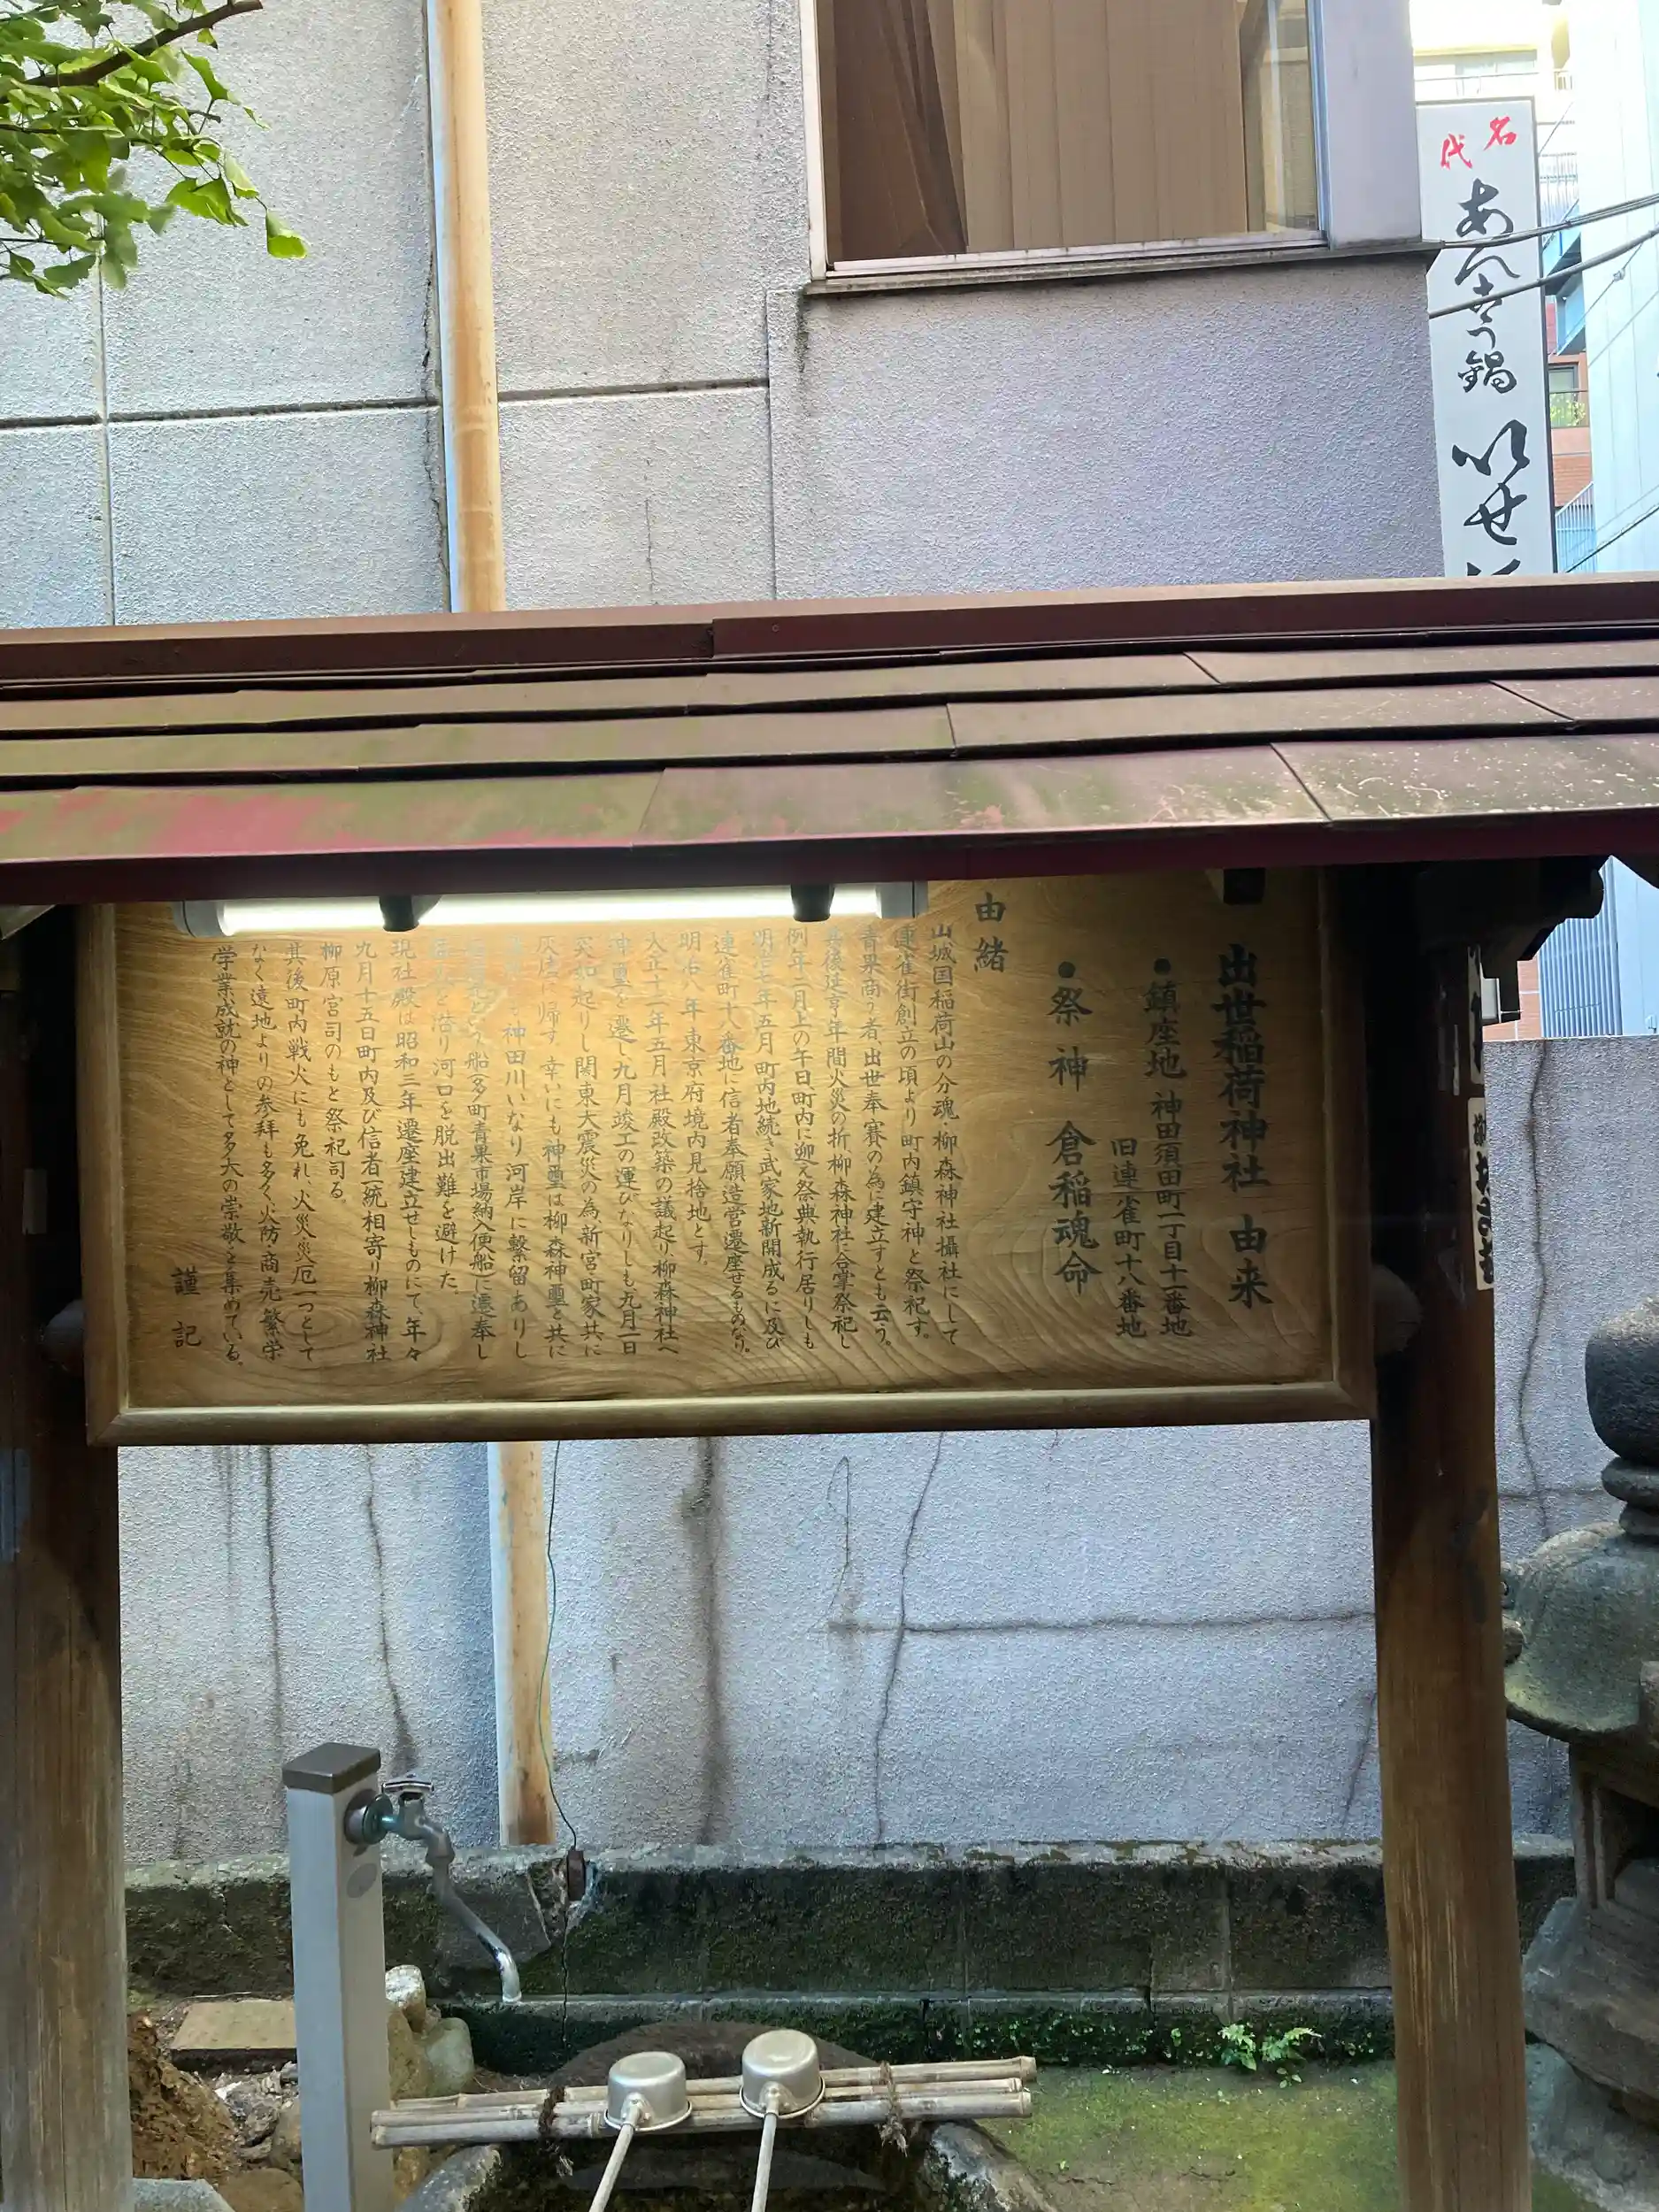 名代
あんこう鍋
いせ
出世稲荷神社 由来
●鎮座地 神田須田町一丁目十一番地
旧連雀町十八番地
●祭神 倉稲魂命
由緒
山城国稲荷山の分魂・柳森神社攝社にして
連雀街創立の頃より町内鎮守神と祭祀す。
青果商う者、出世奉賽の為に建立すとも云う。
其後往亨年間火災の折柳森神社に合掌祭祀し
例年二月上の午日、町内に迎え祭典執行居りしも
明治七年五月町内地続き武家地新開成るに及び
連雀町十八番地に信者奉願造営遷座せるものなり。
明治八年東京府境内見捨地とす。
大正十二年五月社殿改築の議起り、柳森神社へ
神璽を遷し、九月竣工の運びなりしも九月一日
突如起りし関東大震災の為新宮・町家共に
灰燼に帰す、幸いにも神璽は柳森神璽と共に
神田川いなり河岸に繋留ありし
船(多町青果市場納入便船)に遷奉し
潜り河口を脱出難を避けた。
現社殿は昭和三年遷座建立せしものにて、年々
九月十五日町内及び信者一統相寄り柳森神社
柳原宮司のもと祭祀司る。
其後町内戦火にも免れ、火災、災厄一つとして
なく遠地よりの参拝も多く、火防・商売繁栄
学業成就の神として多大の崇敬を集めている。
謹記